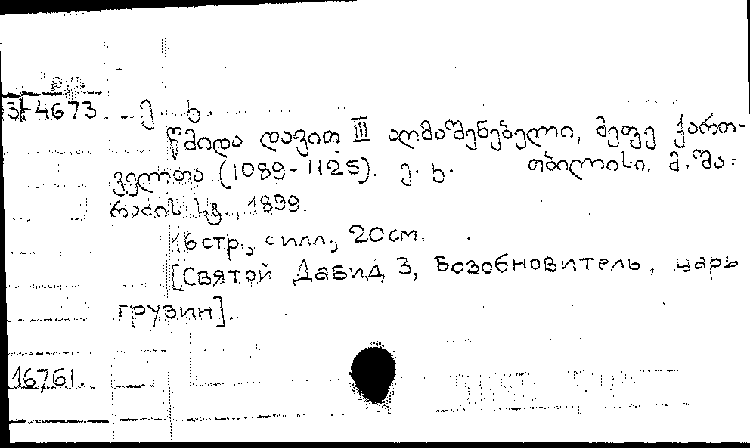 3+4673. ე. ხ.
წმიდა დავით III აღმაშენებელი, მეფე ქართ-
ველთა (1089-1125). ე. ხ. თბილისი, მ. შა-
რაძის სტ., 1899.
16 стр., с илл., 20 см.
[Святой Давид 3, Возобновитель, царь
грузин].
16761.